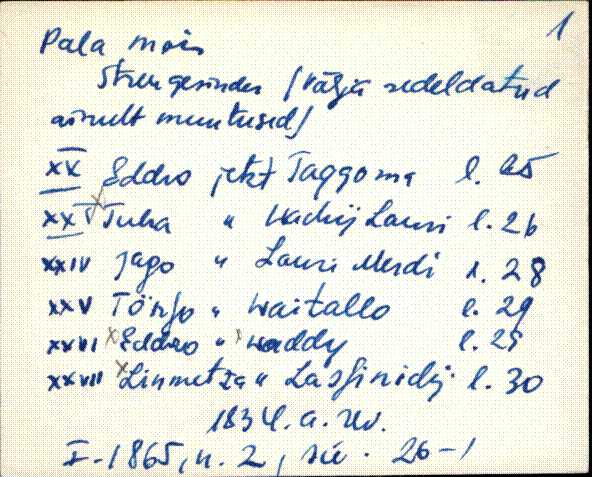 1
Pala mõis
Streugesinder (välja sedeldatud
ainult muutused)
XX Eddro jetzt Taggoma l. 25
XXI Tuha " Wachij Lauri l. 26
XXIV Jago " Lauri Merdi l. 28
XXV Tönjo " Waitallo l. 29
XXVI Eddro " Waddy l. 29
XXVII Linmetza " l. 30
1834. a. rev.
F. 1865, n. 2, 26-1